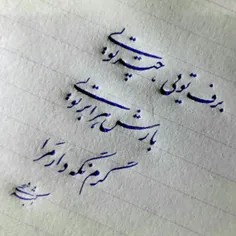 برف تویی چتر تویی
بارش هر ابر تویی
گرم نگه دار مرا